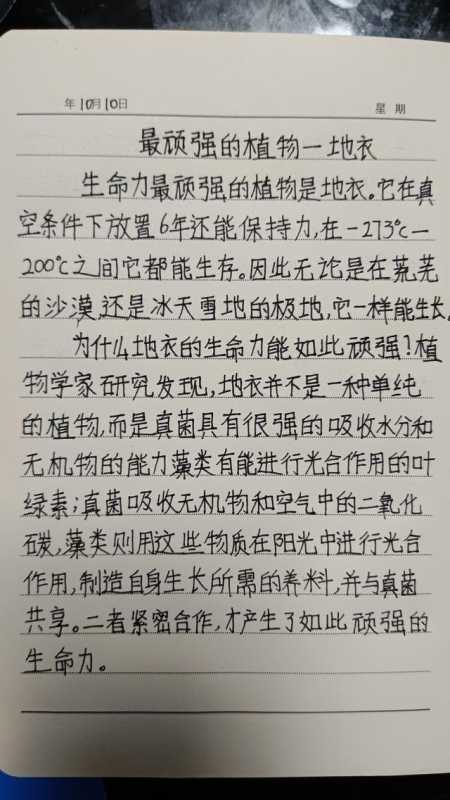 年10月10日 星 期
最顽强的植物一地衣
生命力最顽强的植物是地衣。它在真
空条件下放置6年还能保持力,在-273℃一
200℃之间它都能生存。因此无论是在荒芜
的沙漠,还是冰天雪地的极地,它一样能生长。
为什么地衣的生命力能如此顽强?植
物学家研究发现,地衣并不是一种单纯
的植物,而是真菌具有很强的吸收水分和
无机物的能力藻类有能进行光合作用的叶
绿素;真菌吸收无机物和空气中的二氧化
碳,藻类则用这些物质在阳光中进行光合
作用,制造自身生长所需的养料,并与真菌
共享。二者紧密合作,才产生了如此顽强的
生命力。